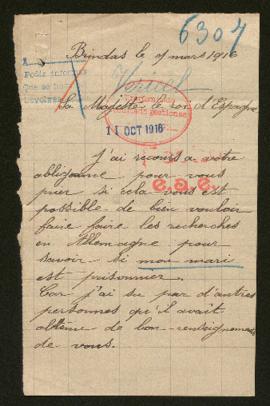 6307
Brindas le 9 mars 1916
Veriel
Sa Majesté le roi d'Espagne
11 OCT 1916
J'ai recours a votre
obligeance pour vous
prier si cela vous est
possible de bien vouloir
faire faire les recherches
en Allemagne pour
savoir si mon mari
est prisonnier.
Car j'ai su par d'autres
personnes qu'il avait
obtenu de bon renseignements
de vous.